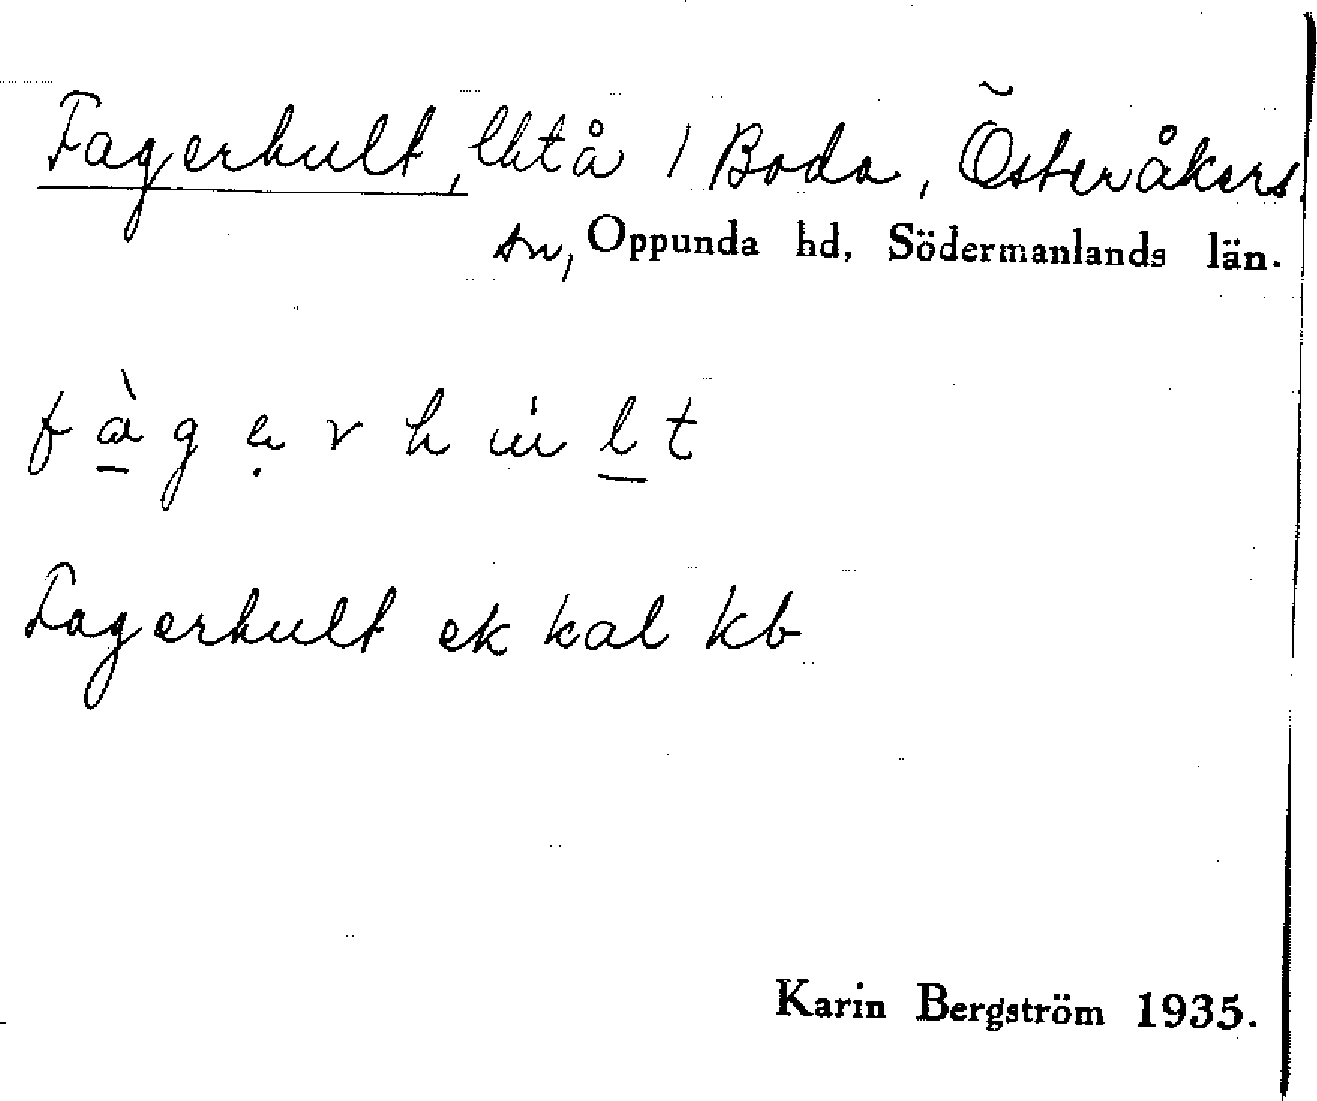 Fagerhult, lhtå / Boda, Österåkers
sn, Oppunda hd, Södermanlands län.
fàgẹrhu̇lt
Fagerhult ek kal kb
Karin Bergström 1935.